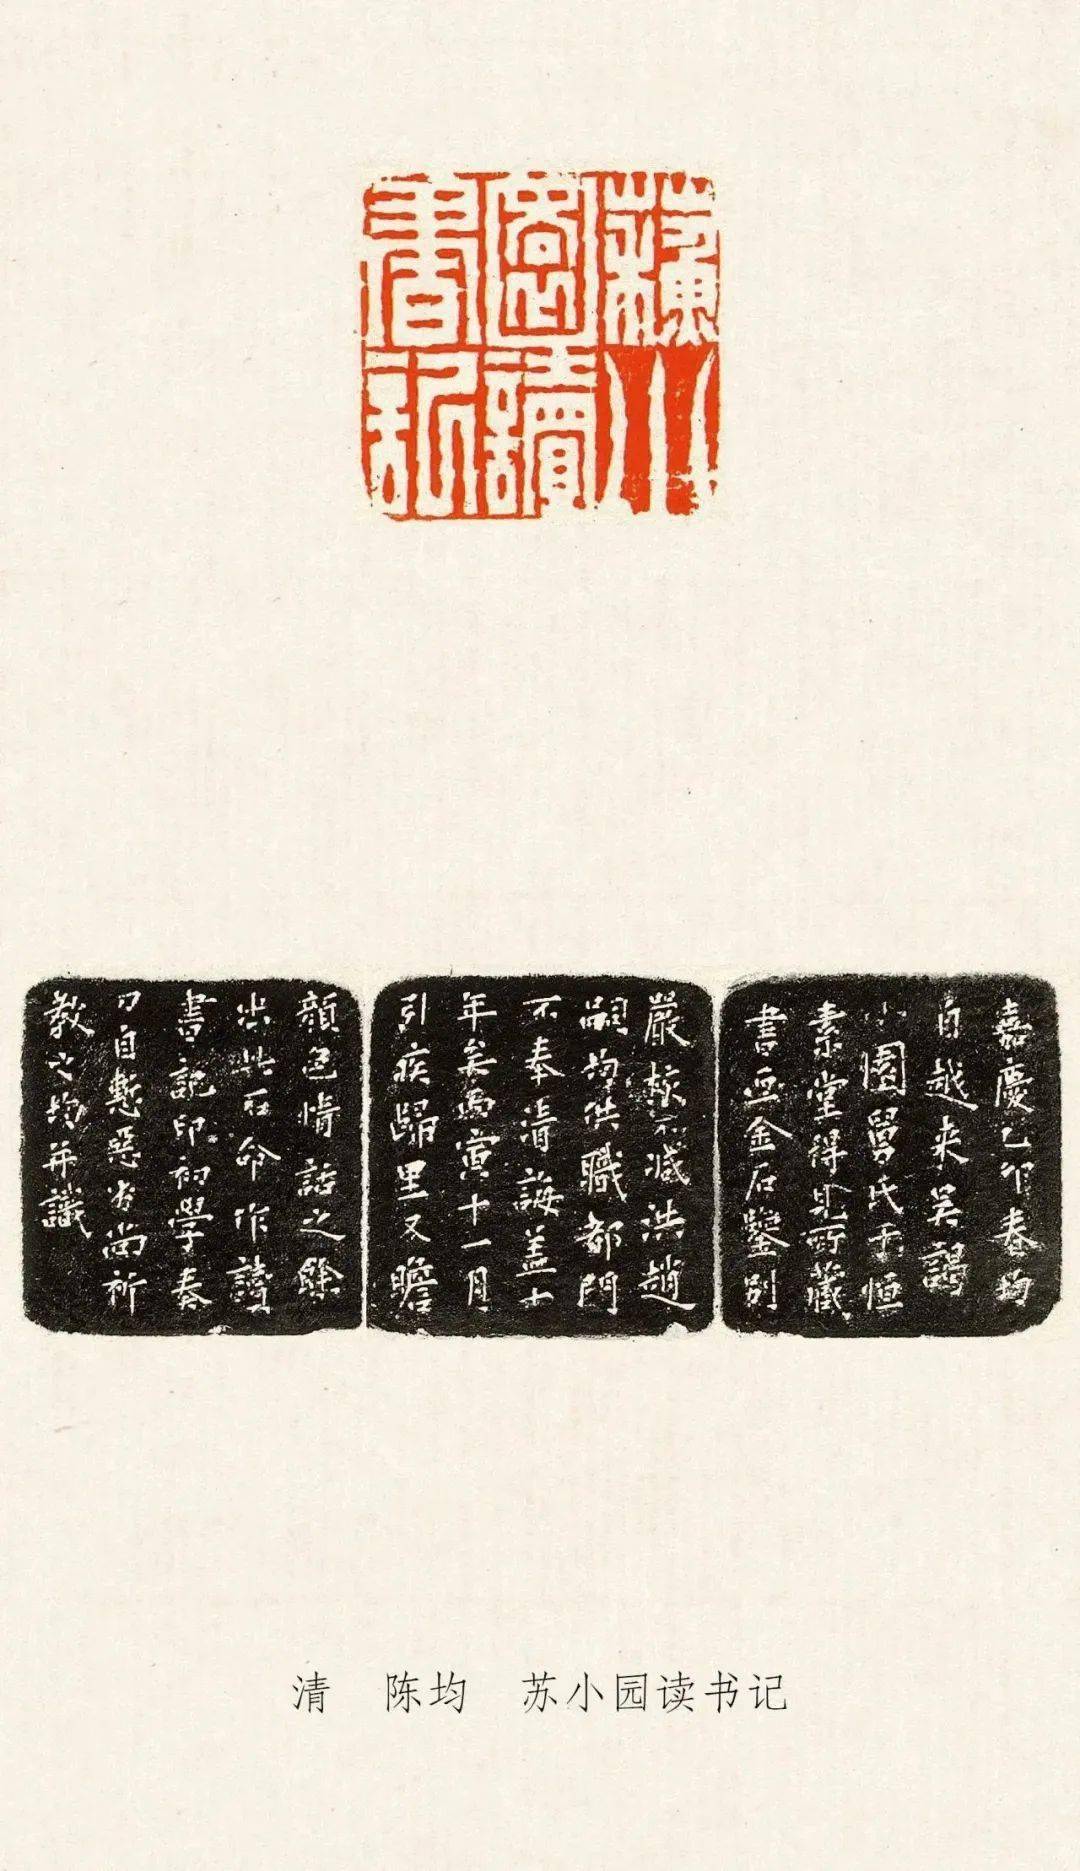 蘇小
園讀
書記
嘉慶乙卯春均
自越来吴謁
小園舅氏于恒
素堂得見所藏
書画金石鑒别
嚴核不减洪趙
嗣均供職都門
不奉清誨盖十
年矣丙寅十一月
引疾歸里又瞻
顏色情話之餘
出此石命作讀
書記印初學奏
刀自慙惡劣尚祈
教之均并識
清 陈均 苏小园读书记